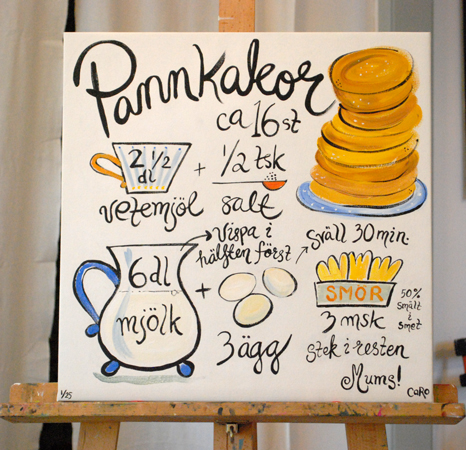 Pannkakor
ca 16 st
2 1/2
dl
+
1/2 tsk
vetemjöl
salt
→ Vispa i
hälften först
↗ sväll 30 min.
6 dl
mjölk
+
3 ägg
SMÖR
50%
smält
i
smet
3 msk
stek i resten
Mums!
1/25
CaRO